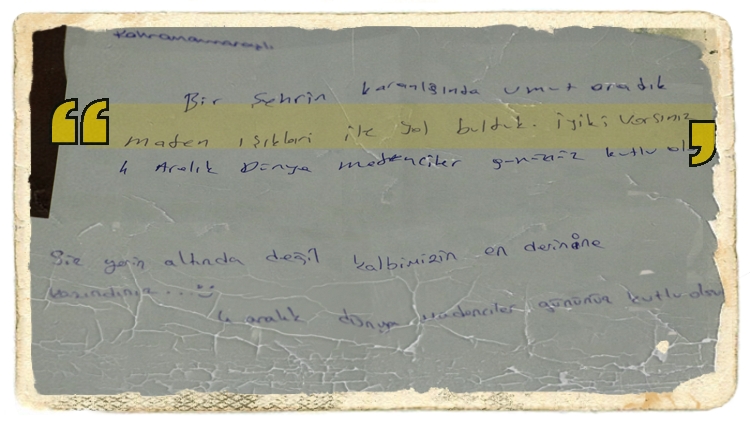 Kahramanmaraşlı
Bir Şehrin karanlığında umut aradık
maden ışıkları ile yol bulduk. İyiki Varsınız
4 Aralık Dünya madenciler gününüz kutlu
Siz yerin altında değil kalbimizin en derinine
kazındınız...
4 aralık dünya madenciler gününüz kutlu olsun